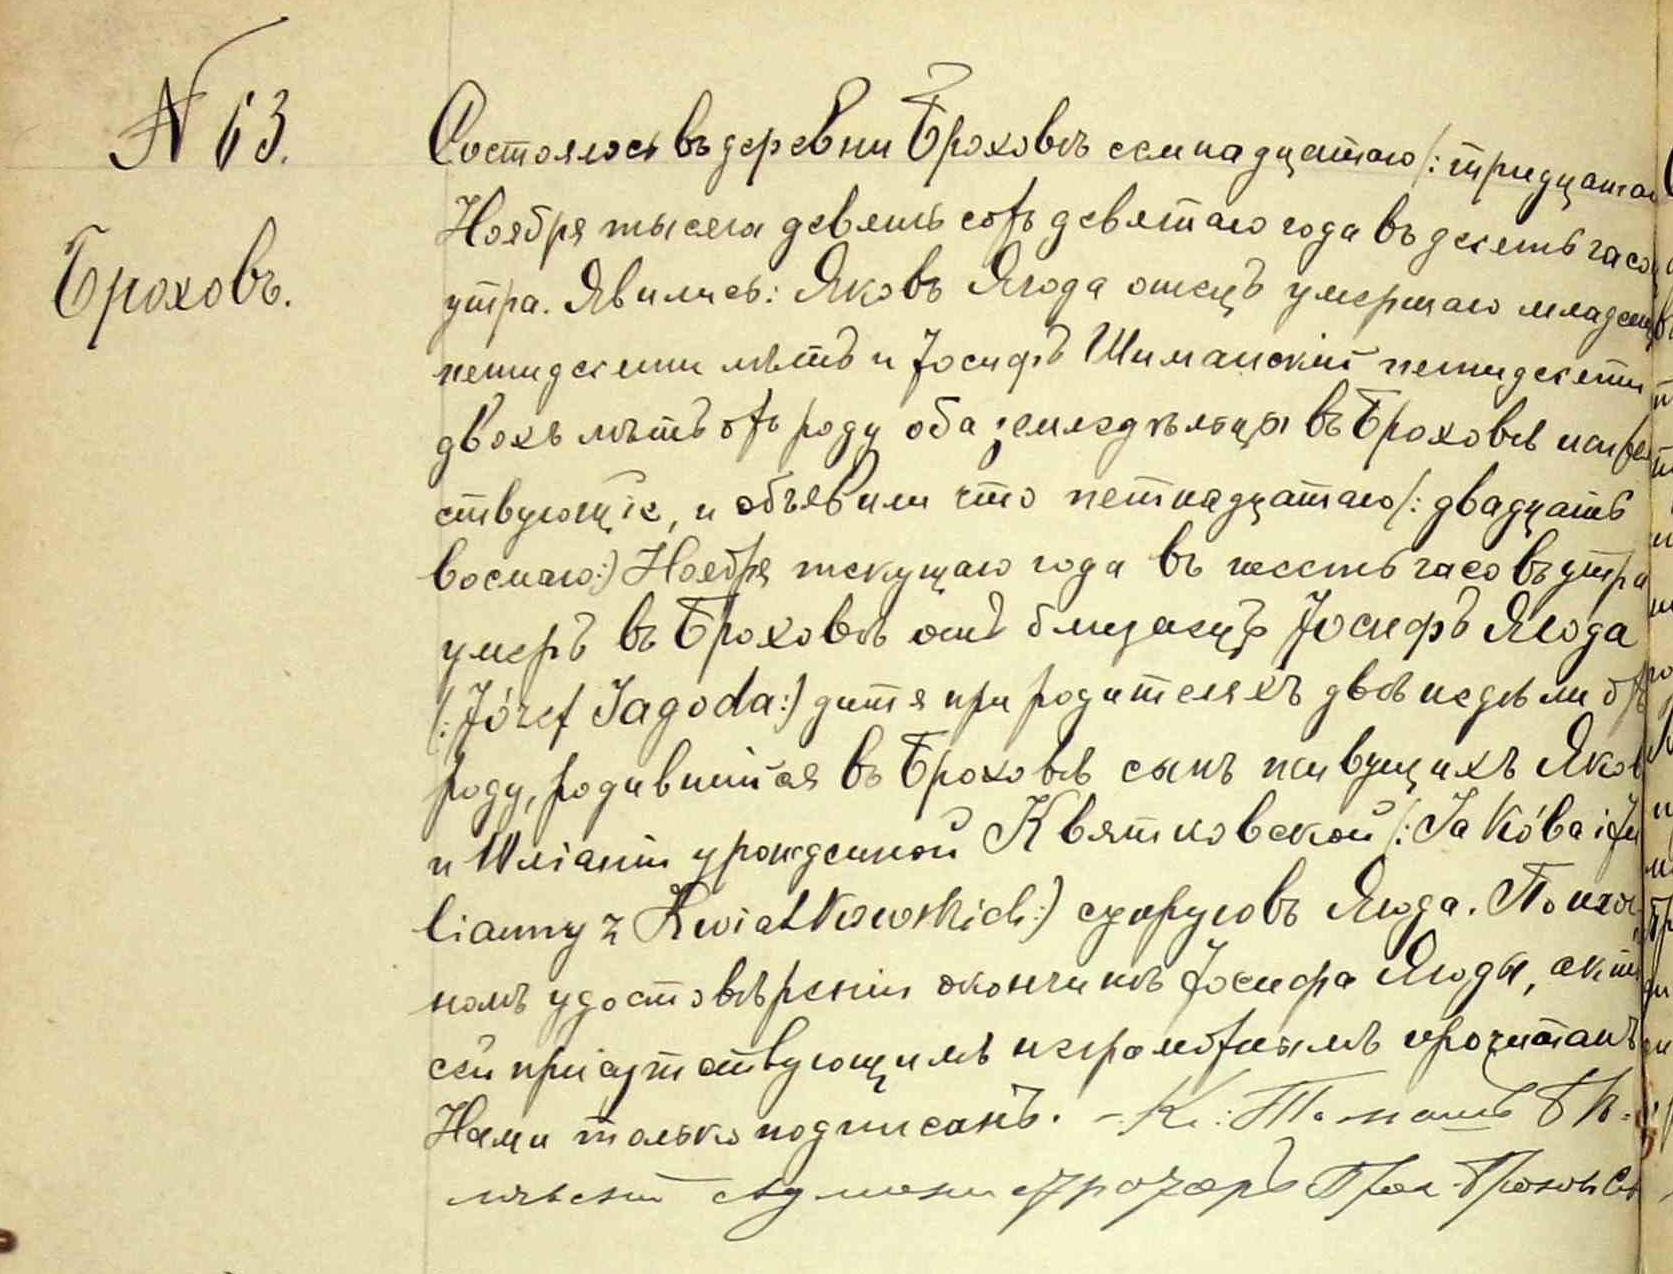 N 63.
Броховъ.
Состоялось въ деревни Броховѣ семнадцатаго /: тридцатаго
Ноября тысяча девять сотъ девятаго года въ десять часо
утра. Явились: Яковъ Ягода отецъ умершаго младен
петидесети лѣтъ и Іосифъ Шиманскій петидесети
двохъ лѣтъ отъ роду оба земледѣльцы въ Броховѣ
ствующіе, и объявили что петнадцатаго /: двадцать
восмаго :) Ноября текущаго года въ шесть часовъ утра
умеръ въ Броховѣ близнецъ Іосифъ Ягода
/: Józef Jagoda :) дитя при родителяхъ двѣ недѣли отъ
роду, родившійся въ Броховѣ сынъ живущихъ Яков
и Юліанны урожденной Квятковской /: Jakóba i Ju
lianny z Kwiatkowskich :) супруговъ Ягода. По
номъ удостовѣреніи окончинѣ Іосифа Ягоды, актъ
сей присутствующимъ неграмотнымъ прочитанъ
Нами только подписанъ. - Кс: